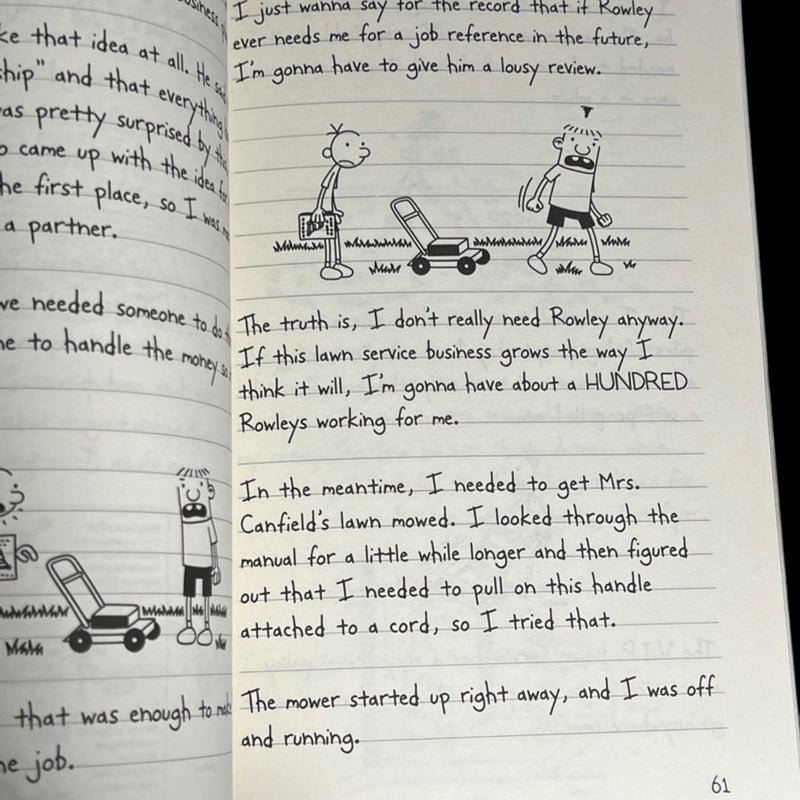 usiness
ke that idea at all. He sa
hip" and that everything
as pretty surprised by th
o came up with the idea for
he first place, so I was
a partner.
we needed someone to do
ne to handle the money
that was enough to mak
he job.
I just wanna say for the record that if Rowley
ever needs me for a job reference in the future,
I'm gonna have to give him a lousy review.
The truth is, I don't really need Rowley anyway.
If this lawn service business grows the way I
think it will, I'm gonna have about a HUNDRED
Rowleys working for me.
In the meantime, I needed to get Mrs.
Canfield's lawn mowed. I looked through the
manual for a little while longer and then figured
out that I needed to pull on this handle
attached to a cord, so I tried that.
The mower started up right away, and I was off
and running.
61